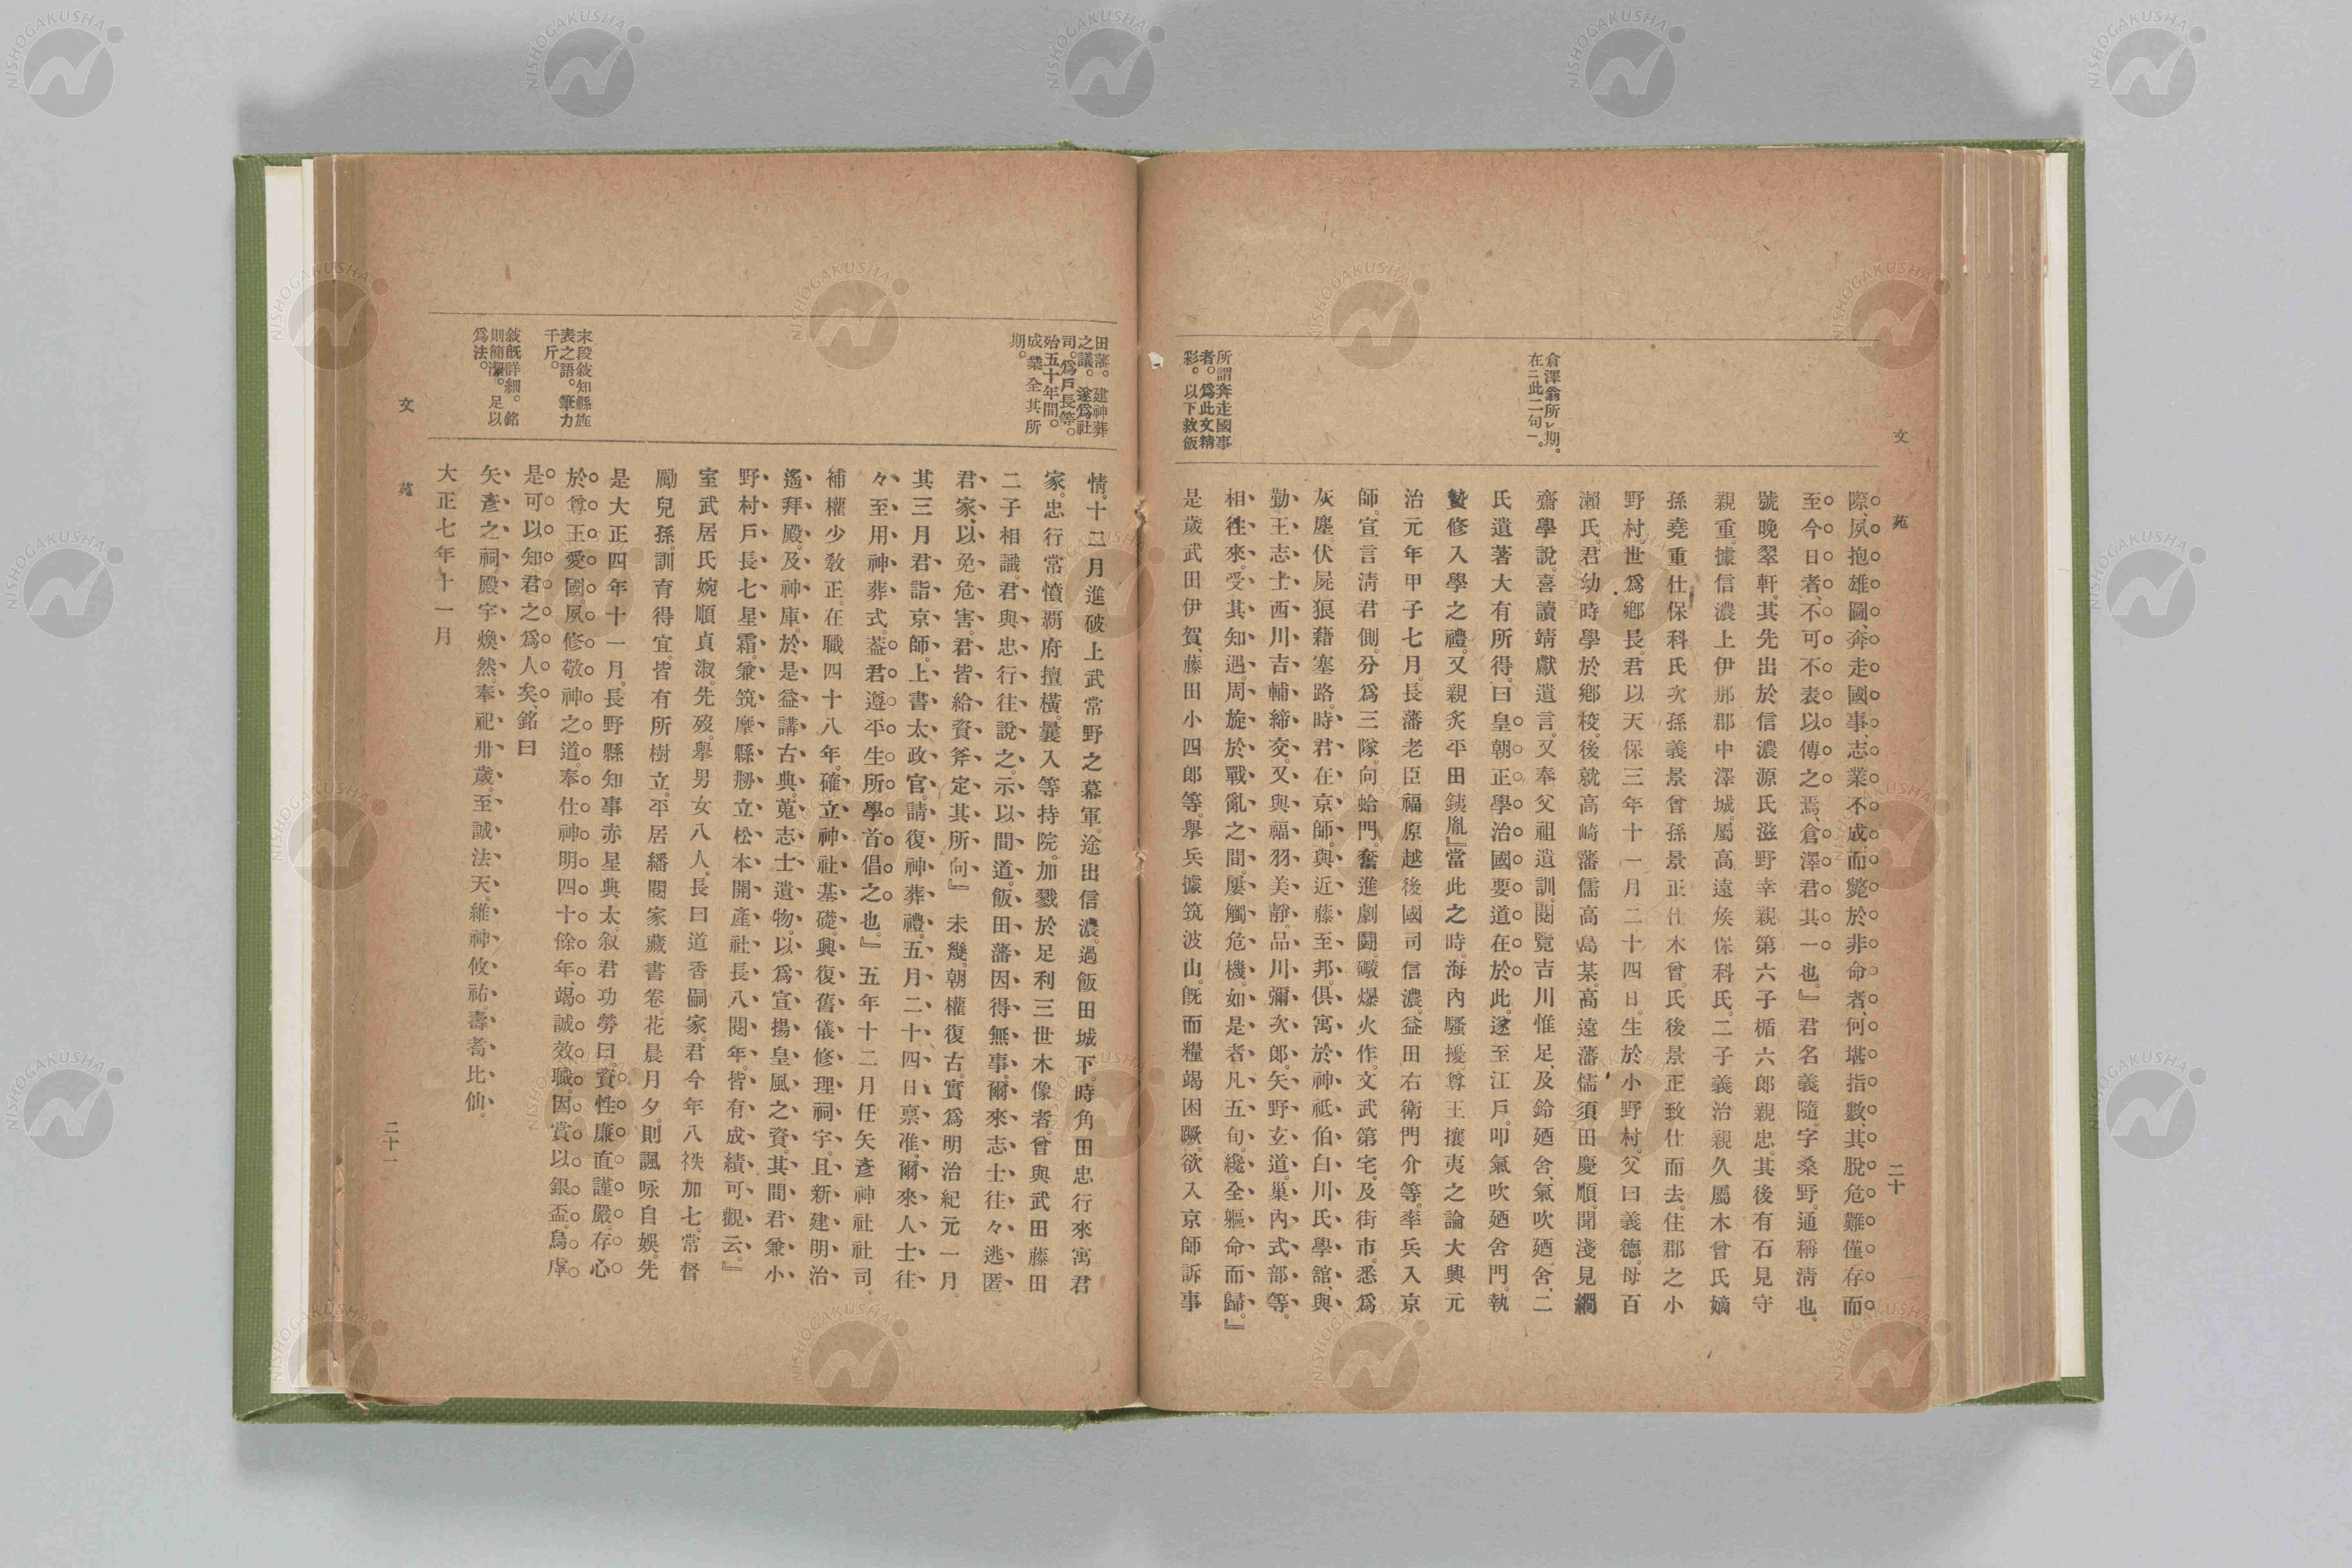 文苑
二十
際、夙抱雄圖、奔走國事、志業不成、而斃於非命者、何堪指數、其脫危難僅存而
至今日者、不可不表以傳之焉、倉澤君其一也。』君名義隨。字桑野。通稱淸也。
號晚翠軒。其先出於信濃源氏滋野幸親第六子楯六郎親忠。其後有石見守
親重。據信濃上伊那郡中澤城。屬高遠侯保科氏。二子義治親久屬木曾氏。嫡
孫堯重仕保科氏。次孫義景曾孫景正仕木曾。氏後景正致仕而去。住郡之小
野村。世爲鄉長。君以天保三年十一月二十四日。生於小野村。父曰義德。母百
瀨氏。君幼時學於鄉校。後就高崎藩儒高島某。高遠藩儒須田慶順。聞淺見絅
齋學說。喜讀靖獻遺言。又奉父祖遺訓。閱覽吉川惟足、及鈴廼舍、氣吹廼舍、二
氏遺著大有所得。曰皇朝正學治國要道在於此。遂至江戶。叩氣吹廼舍門。執
贄修入學之禮。又親炙平田銕胤。』當此之時。海內騷擾。尊王攘夷之論大興元
治元年甲子七月。長藩老臣福原越後、國司信濃。益田右衛門介等。率兵入京
師。宣言淸君側。分爲三隊。向蛤門。奮進劇鬪。礮爆火作。文武第宅。及街市。悉爲
灰塵。伏屍狼藉塞路。時君在京師。與近藤至邦。俱寓於神祗伯白川氏學舘、與
勤王志士西川吉輔締交。又與福羽美靜。品川彌次郎。矢野玄道。巢內式部等。
相往來。受其知遇。周旋於戰亂之間。屢觸危機。如是者凡五旬。纔全軀命而歸。』
是歲武田伊賀、藤田小四郎等。擧兵據筑波山。旣而糧竭困蹶。欲入京師訴事
倉澤翁所レ期。
在ニ此二句一。
所謂奔走國事
者。爲此文精
彩。以下救飯
田藩。建神葬
之議。遂爲社
司。爲戶長等。
殆五十年間。
成業全其所
期。
情。十二月進破上武常野之幕軍。途出信濃。過飯田城下。時角田忠行來寓君
家。忠行常憤覇府擅橫。曩入等持院。加戮於足利三世木像者。曾與武田藤田
二子相識。君與忠行往說之。示以間道。飯田藩因得無事。爾來志士往々逃匿
君家、以免危害。君皆給資斧定其所向』未幾。朝權復古。實爲明治紀元一月。
其三月君詣京師。上書太政官。請復神葬禮。五月二十四日禀准。爾來人士往
々至用神葬式。蓋君遵平生所學首倡之也。』五年十二月任矢彥神社社司。
補權少敎正。在職四十八年。確立神社基礎。興復舊儀修理祠宇。且新建明治
遙拜殿。及神庫。於是益講古典。蒐志士遺物。以爲宣揚皇風之資。其間君兼小
野村戶長七星霜。兼筑摩縣捌立松本開產社長。八閱年。皆有成績可觀云。』
室武居氏婉順貞淑。先歿。擧男女八人。長曰道香。嗣家。君今年八秩加七。常督
勵兒孫。訓育得宜。皆有所樹立。平居繙閱家藏書卷。花晨月夕。則諷咏自娛。先
是大正四年十一月。長野縣知事赤星典太。敘君功勞曰。資性廉直謹嚴。存心
於尊王愛國夙修敬神之道。奉仕神明四十餘年、竭誠效職因賞以銀盃。烏虖
是可以知君之爲人矣。銘曰
矢彥之祠殿宇煥然。奉祀卅歲。至誠法天。維神攸祐壽耈比仙。
大正七年十一月
末段敍知縣旌
表之語。筆力
千斤。
敍旣詳細。銘
則簡潔。足以
爲法。
文苑
二十一